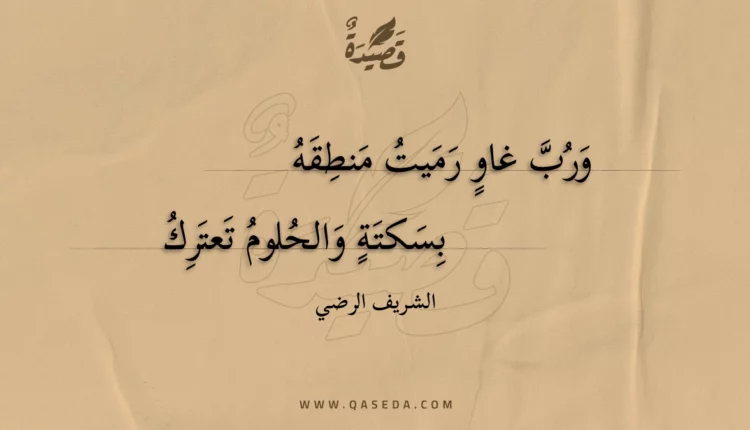 قَصِيدَةٌ
وَرُبَّ غاوٍ رَمَيتُ مَنطِقَهُ
بِسَكتَةٍ وَالحُلومُ تَعتَرِكُ
الشريف الرضي
WWW.QASEDA.COM